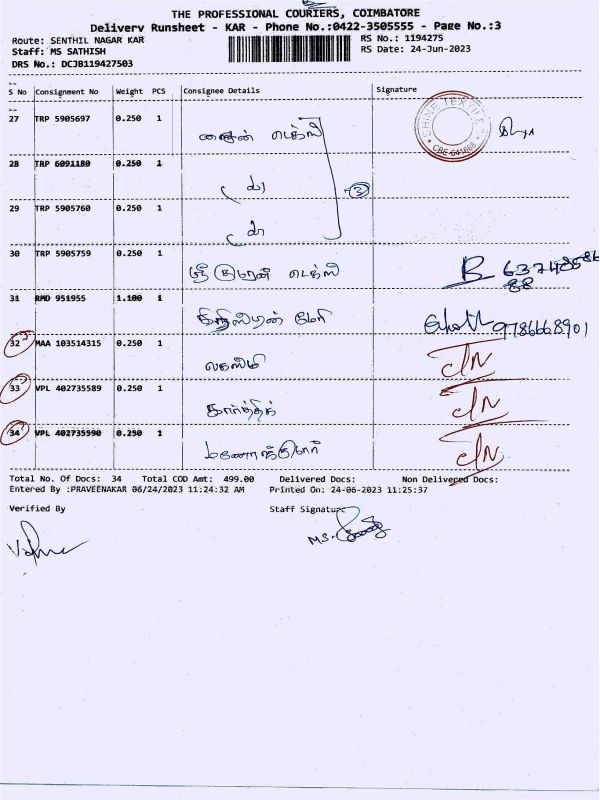 THE PROFESSIONAL COURIERS, COIMBATORE
Delivery Runsheet - KAR - Phone No.:0422-3505555 - Page No.:3
Route: SENTHIL NAGAR KAR
RS No.: 1194275
Staff: MS SATHISH
RS Date: 24-Jun-2023
DRS No.: DCJB119427503
S No Consignment No Weight PCS Consignee Details Signature
27 TRP 5905697 0.250 1
சைன் டெக்ஸ்
SHINE TEXTILE
CBE
28 TRP 6091180 0.250 1
3
29 TRP 5905760 0.250 1
30 TRP 5905759 0.250 1
ஸ்ரீ குமரன் டெக்ஸ்
31 RMD 951955 1.100 1
கிறிஸ்டியன் மேரி
9786668901
32 MAA 103514315 0.250 1
லக்ஸ்மி
33 VPL 402735589 0.250 1
கார்த்திக்
34 VPL 402735590 0.250 1
மனோரஞ்சிதம்
Total No. Of Docs: 34 Total COD Amt: 499.00 Delivered Docs: Non Delivered Docs:
Entered By :PRAVEENAKAR 06/24/2023 11:24:32 AM Printed On: 24-06-2023 11:25:37
Verified By Staff Signature